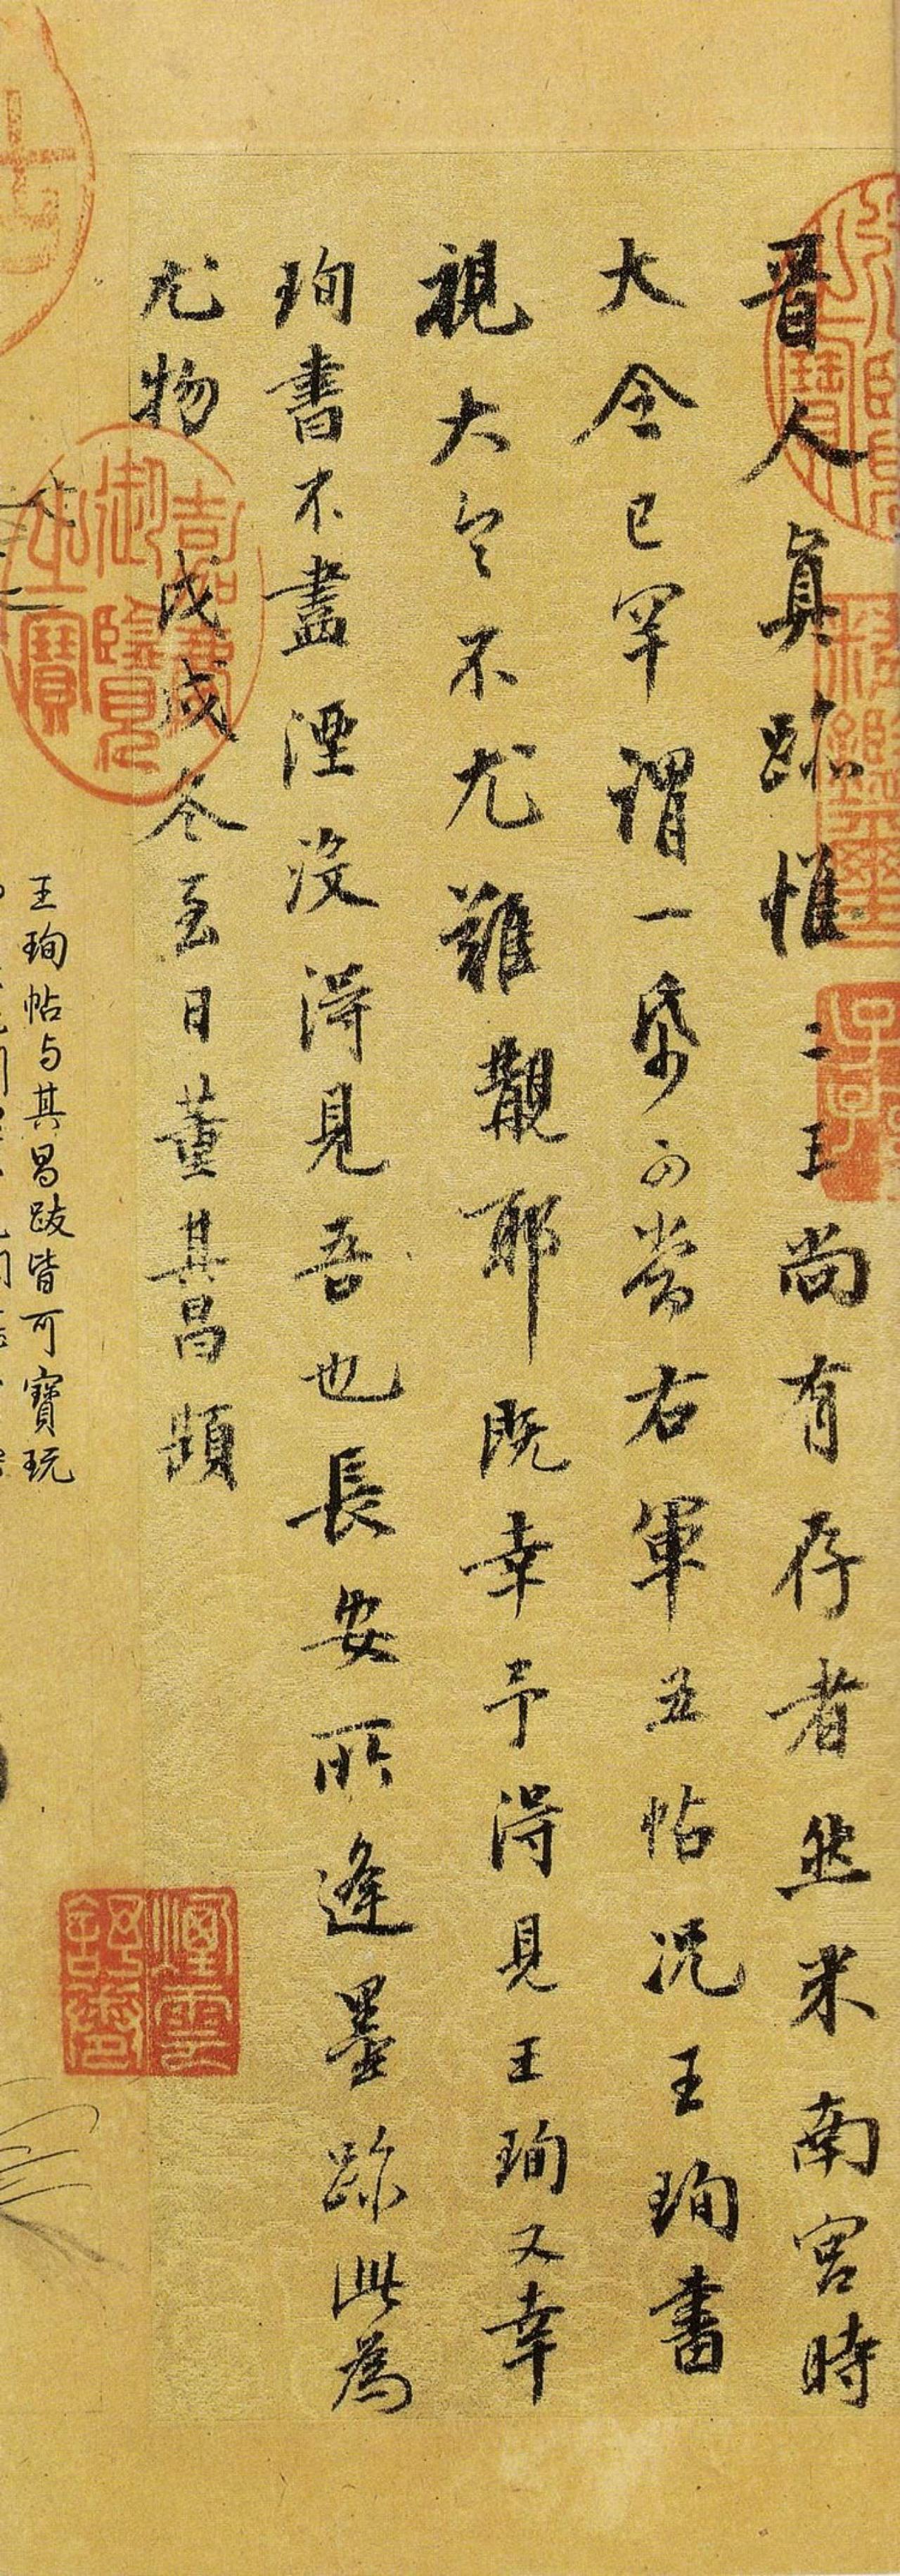 晋人真跡惟二王尚有存者然米南宮時
大令已罕謂一帋可當右軍五帖況王珣書
視大令不尤難覯耶既幸予得見王珣又幸
珣書不盡湮沒得見吾也長安所逢墨跡此為
尤物 戊戌冬至日董其昌題
王珣帖与其昌跋皆可寶玩
嘉慶御覽之寶